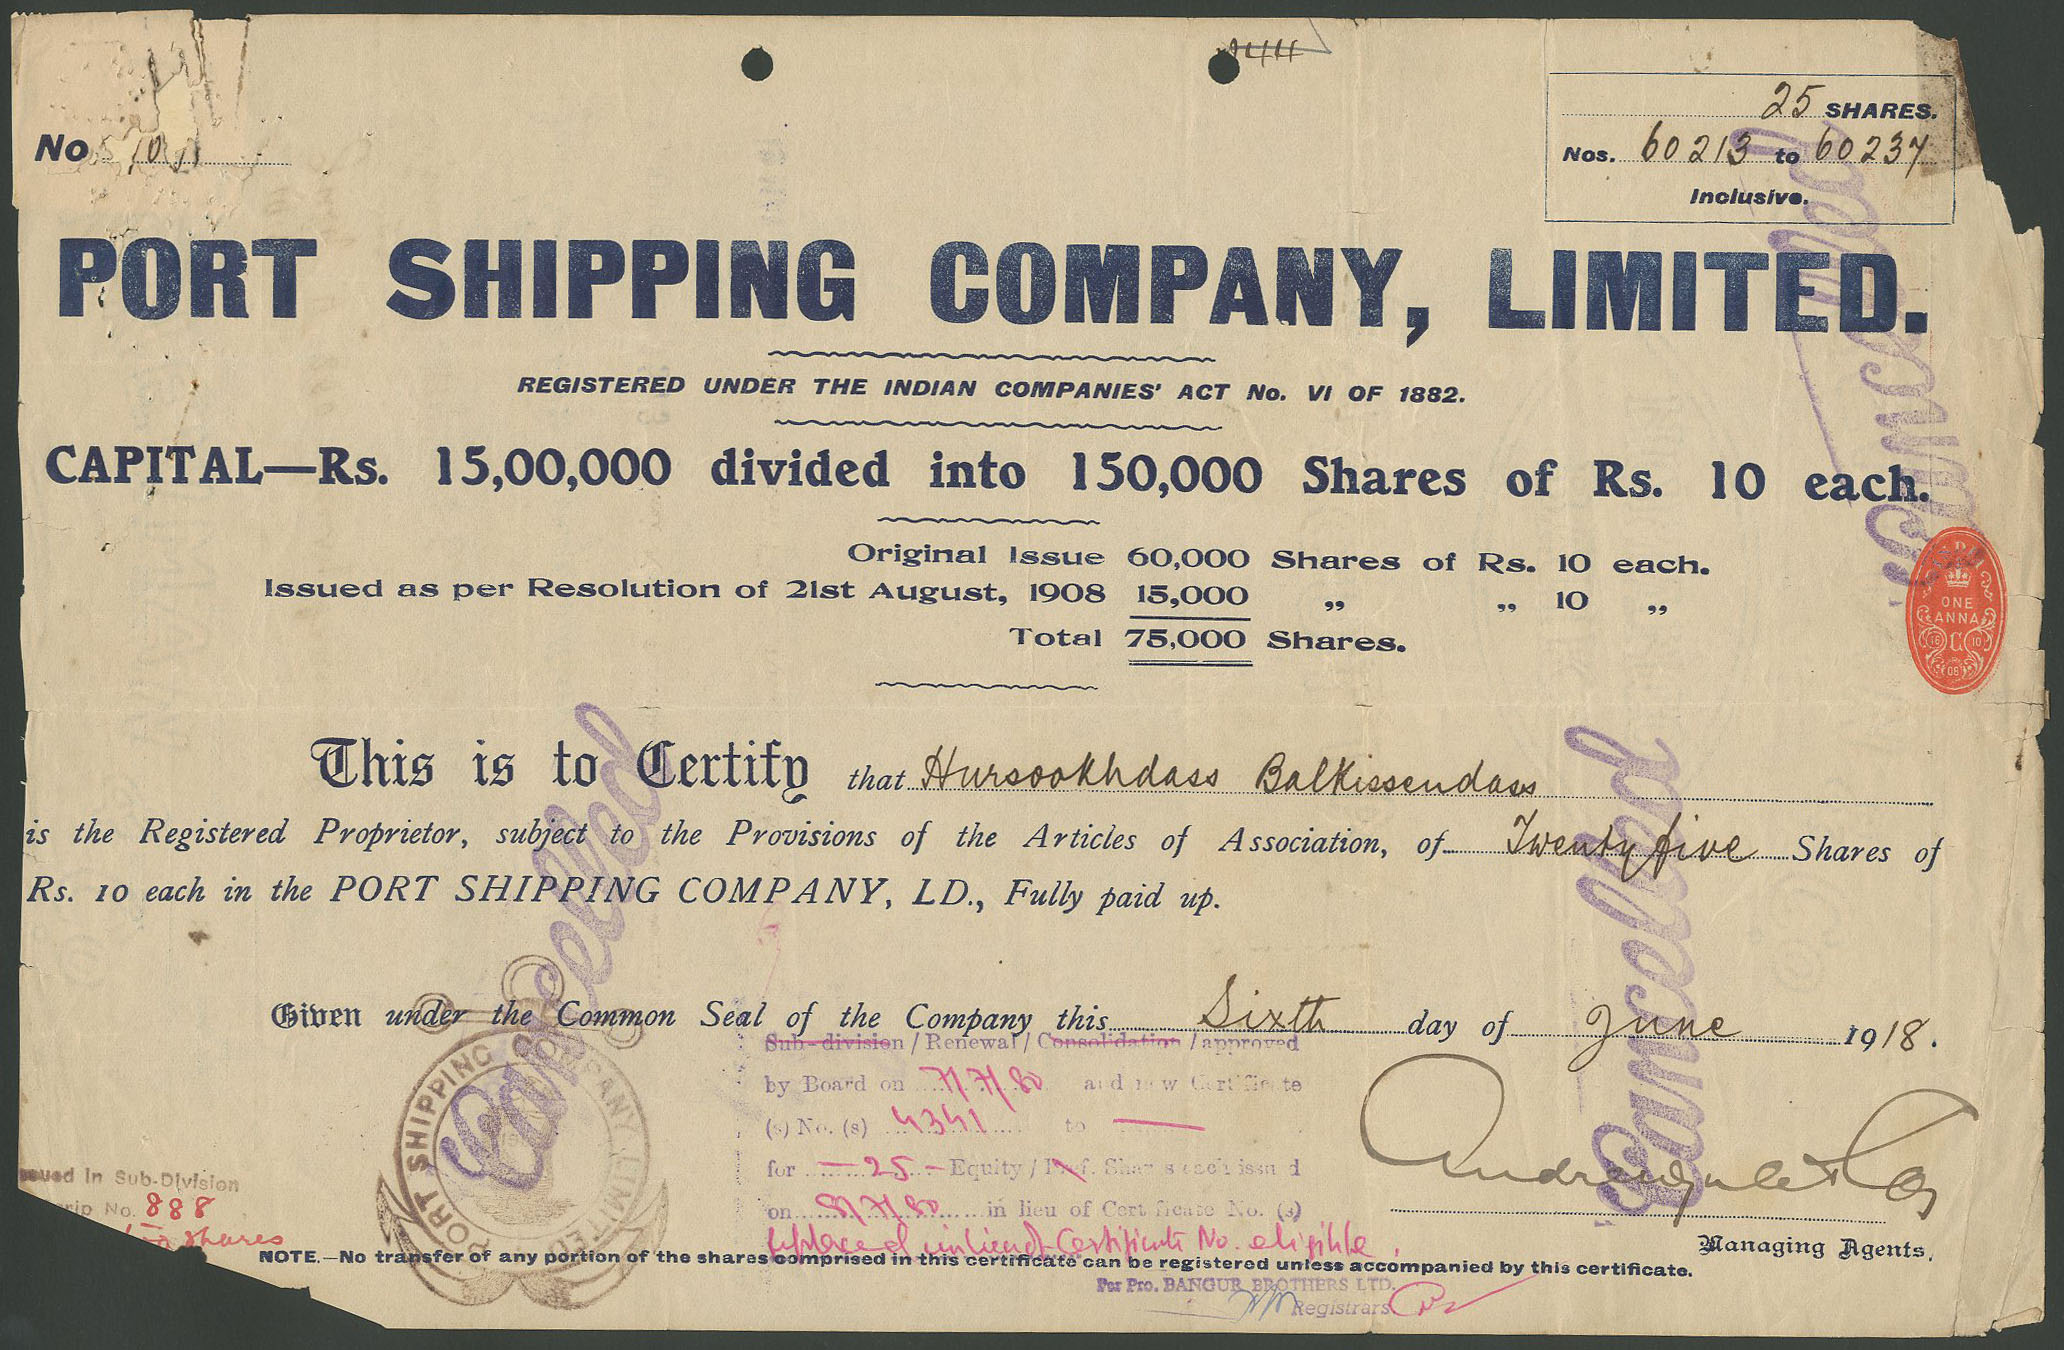 No
25 SHARES.
Nos. 60213 to 60237
Inclusive.
PORT SHIPPING COMPANY, LIMITED.
REGISTERED UNDER THE INDIAN COMPANIES' ACT No. VI OF 1882.
CAPITAL—Rs. 15,00,000 divided into 150,000 Shares of Rs. 10 each.
Original Issue 60,000 Shares of Rs. 10 each.
Issued as per Resolution of 21st August, 1908 15,000 „ „ 10 „
Total 75,000 Shares.
ONE
ANNA
Cancelled
This is to Certify that Hursookhdass Balkissendass
is the Registered Proprietor, subject to the Provisions of the Articles of Association, of Twenty five Shares of
Rs. 10 each in the PORT SHIPPING COMPANY, LD., Fully paid up.
Cancelled
Cancelled
Given under the Common Seal of the Company this Sixth day of June 1918.
PORT SHIPPING COMPANY LIMITED
Sub-division / Renewal / Consolidation / approved
by Board on 7/7/80 and new Certificate
(s) No. (s) 4341 to —
for — 25 — Equity / Pref. Shares each issued
on 8/7/80 in lieu of Certificate No. (s)
replaced in lieu of Certificate No. eligible
Issued in Sub-Division
Scrip No. 888
Shares
Managing Agents.
NOTE.—No transfer of any portion of the shares comprised in this certificate can be registered unless accompanied by this certificate.
For Pro. BANGUR BROTHERS LTD.
Registrars